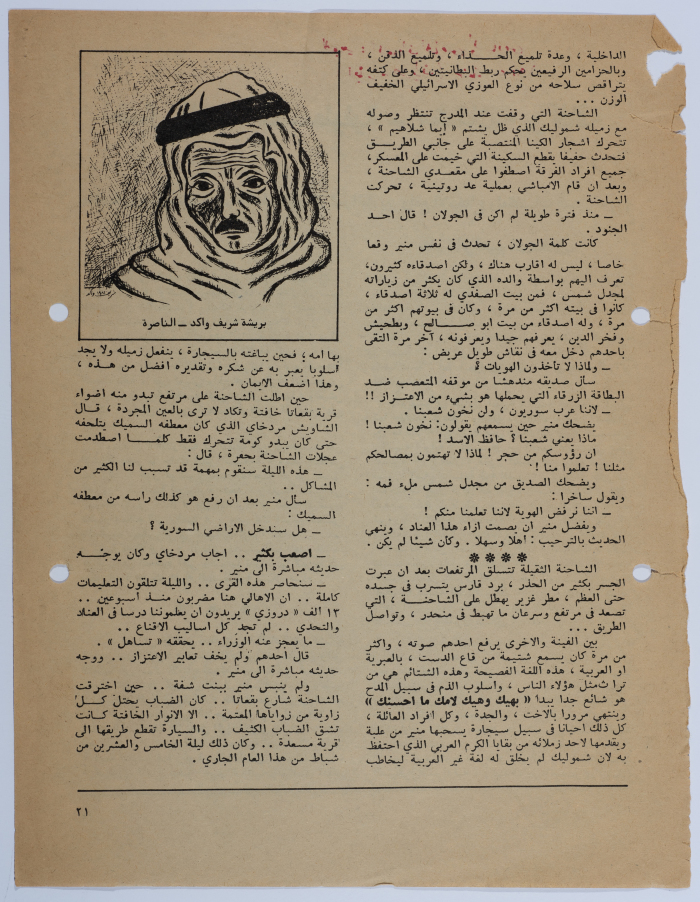 الداخلية ، وعدة تلميع الحـــذاء ، وتلميع الذقن ،
وبالحزامين الرفيعين يحكم ربط البطانيتين ، وعلى كتفه
يتراقص سلاحه من نوع العوزي الاسرائيلي الخفيف
الوزن ...
الشاحنة التي وقفت عند المدرج تنتظر وصوله
مع زميله شموليك الذي ظل يشتم « إيما شلاهيم » ،
تتحرك اشجار الكينا المنتصبة على جانبي الطريــق
فتحدث حفيفا يقطع السكينة التي خيمت على المعسكر،
جميع افراد الفرقة اصطفوا على مقعدي الشاحنة ،
وبعد ان قام الامباشي بعملية عد روتينية ، تحركت
الشاحنة .
ــ منذ فترة طويلة لم اكن في الجولان ! قال احد
الجنود .
كانت كلمة الجولان ، تحدث في نفس منير وقعا
خاصا ، ليس له اقارب هناك ، ولكن اصدقاءه كثيرون،
تعرف اليهم بواسطة والده الذي كان يكثر من زياراته
لمجدل شمس ، فمن بيت الصفدي له ثلاثة اصدقاء ،
كانوا في بيته اكثر من مرة ، وكان في بيوتهم اكثر من
مرة ، وله اصدقاء من بيت ابو صـــالح ، وبطحيش
وفخر الدين ، يعرفهم جيدا ويعرفونه ، آخر مرة التقى
باحدهم دخل معه في نقاش طويل عريض :
ــ ولماذا لا تأخذون الهويات ؟
سأل صديقه مندهشا من موقفه المتعصب ضــد
البطاقة الزرقاء التي يحملها هو بشيء من الاعتزاز !!
ــ لاننا عرب سوريون ، ولن نخون شعبنا .
يضحك منير حين يسمعهم يقولون: نخون شعبنا !
ماذا يعني شعبنا ؟ حافظ الاسد !
ان رؤوسكم من حجر ! لماذا لا تهتمون بمصالحكم
مثلنا ! تعلموا منا ! .
ويضحك الصديق من مجدل شمس ملء فمه :
ويقول ساخرا :
ــ اننا نرفض الهوية لاننا تعلمنا منكم !
ويفضل منير ان يصمت ازاء هذا العناد ، وينهي
الحديث بالترحيب : أهلا وسهلا . وكان شيئا لم يكن .
❋ ❋ ❋ ❋
الشاحنة الثقيلة تتسلق المرتفعات بعد ان عبرت
الجسر بكثير من الحذر ، برد قارس يتسرب في جسده
حتى العظم ، مطر غزير يهطل على الشاحنــة ، التي
تصعد في مرتفع وسرعان ما تهبط في منحدر ، وتواصل
الطريق ...
بين الفينة والاخرى يرفع احدهم صوته ، واكثر
من مرة كان يسمع شتيمة من قاع الدست ، بالعبرية
او العربية ، هذه اللغة الفصيحة وهذه الشتائم هي من
ترا ثمثل هؤلاء الناس ، واسلوب الذم في سبيل المدح
هو شائع جدا يبدا « بهيك وهيك لامك ما احسنك »
وينتهي مرورا بالاخت ، والجدة ، وكل افراد العائلة ،
كل ذلك احيانا في سبيل سيجارة يسحبها منير من علبة
ويقدمها لاحد زملائه من بقايا الكرم العربي الذي احتفظ
به لان شموليك لم يخلق له لغة غير العربية ليخاطب
بريشة شريف واكد ــ الناصرة
بها امه ؛ فحين يباغته بالسيجارة ، ينفعل زميله ولا يجد
أسلوبا يعبر به عن شكره وتقديره افضل من هذه ،
وهذا اضعف الايمان .
حين اطلت الشاحنة على مرتفع تبدو منه اضواء
قرية بقعاثا خافتة وتكاد لا ترى بالعين المجردة ، قــال
الشاويش مردخاي الذي كان معطفه السميك يتلحفه
حتى كان يبدو كومة تتحرك فقط كلمــا اصطدمت
عجلات الشاحنة بحفرة ، قال :
ــ هذه الليلة سنقوم بمهمة قد تسبب لنا الكثير من
المشاكل ..
سأل منير بعد ان رفع هو كذلك راسه من معطفه
السميك :
ــ هل سندخل الاراضي السورية ؟
ــ اصعب بكثير .. اجاب مردخاي وكان يوجــه
حديثه مباشرة الى منير .
ــ سنحاصر هذه القرى .. والليلة تتلقون التعليمات
كاملة .. ان الاهالي هنا مضربون منــذ أسبوعين ..
١٣ الف « دروزي » يريدون ان يعلموننا درسا في العناد
والتحدي .. لم تجد كل اساليب الاقناع ..
ــ ما يعجز عنه الوزراء .. يحققه « تساهل » .
قال احدهم ولم يخف تعابير الاعتزاز .. ووجه
حديثه مباشرة الى منير .
ولم ينبس منير ببنت شفة .. حين اخترقت
الشاحنة شارع بقعاثا .. كان الضباب يحتل كــل
زاوية من زواياها المعتمة .. الا الانوار الخافتة كــانت
تشق الضباب الكثيف .. والسيارة تقطع طريقها الى
قرية مسعدة .. وكان ذلك ليلة الخامس والعشرين من
شباط من هذا العام الجاري .
٢١